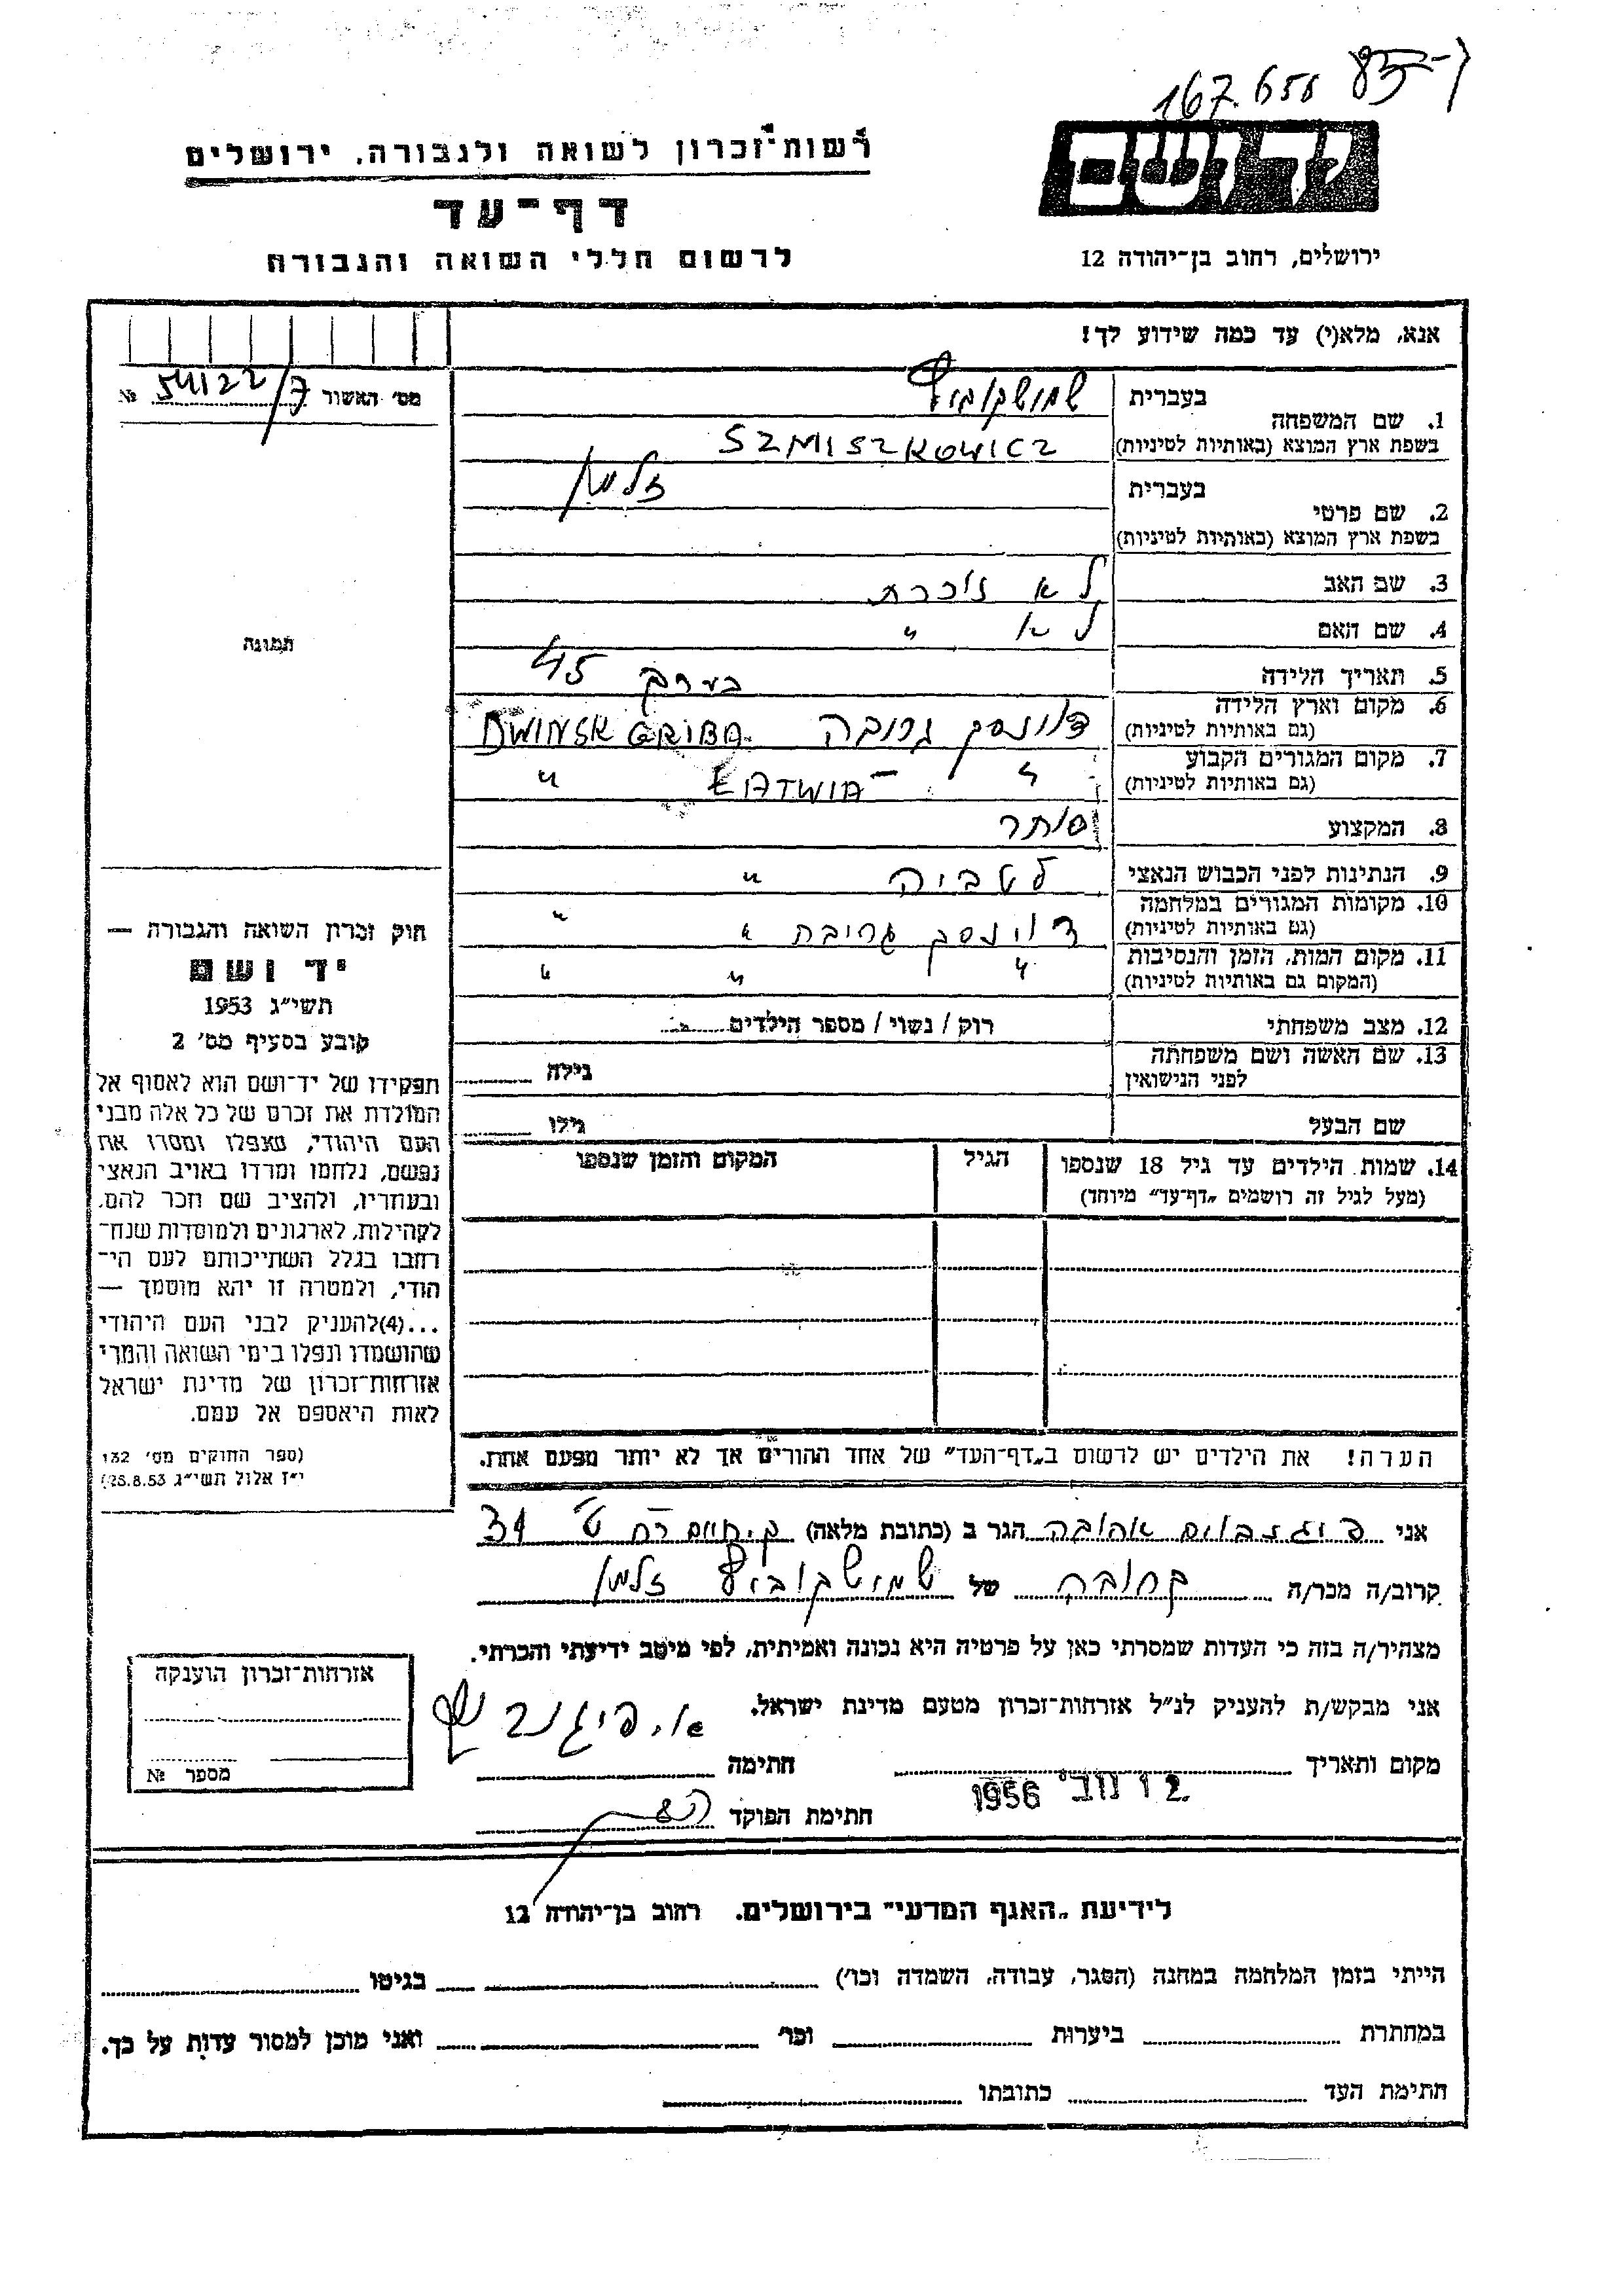 167.656
רשות־זכרון לשואה ולגבורה, ירושלים
יד ושם
דף־עד
לרשום חללי השואה והגבורה
ירושלים, רחוב בן־יהודה 12
אנא, מלא(י) עד כמה שידוע לך!
מס' האשור 54122/7 №
בעברית שמושקוביץ
1. שם המשפחה
בשפת ארץ המוצא (באותיות לטיניות) SZMISZKOWICZ
בעברית זלמן
2. שם פרטי
בשפת ארץ המוצא (באותיות לטיניות)
3. שם האב לא זוכרת
4. שם האם לא "
תמונה
5. תאריך הלידה בערך 45
6. מקום וארץ הלידה
(גם באותיות לטיניות) דווינסק גרובה DWINSK GRIBA
7. מקום המגורים הקבוע
(גם באותיות לטיניות) " ŁATWIA "
8. המקצוע סוחר
9. הנתינות לפני הכבוש הנאצי לטביה "
10. מקומות המגורים במלחמה
(גם באותיות לטיניות) דווינסק גריבה " "
11. מקום המות, הזמן והנסיבות
(המקום גם באותיות לטיניות) " " "
12. מצב משפחתי רוק / נשוי / מספר הילדים
13. שם האשה ושם משפחתה
לפני הנישואין גילה
שם הבעל גילו
14. שמות הילדים עד גיל 18 שנספו הגיל המקום והזמן שנספו
(מעל לגיל זה רושמים „דף־עד" מיוחד)
חוק זכרון השואה והגבורה —
יד ושם
תשי"ג 1953
קובע בסעיף מס' 2
תפקידו של יד־ושם הוא לאסוף אל
המולדת את זכרם של כל אלה מבני
העם היהודי, שנפלו ומסרו את
נפשם, נלחמו ומרדו באויב הנאצי
ובעוזריו, ולהציב שם וזכר להם,
לקהילות, לארגונים ולמוסדות שנח־
רבו בגלל השתייכותם לעם הי־
הודי, ולמטרה זו יהא מוסמך —
...(4)להעניק לבני העם היהודי
שהושמדו ונפלו בימי השואה והמרי
אזרחות־זכרון של מדינת ישראל
לאות היאספם אל עמם.
(ספר החוקים מס' 132
י"ז אלול תשי"ג 28.8.53)
הערה! את הילדים יש לרשום ב„דף־העד" של אחד ההורים אך לא יותר מפעם אחת.
אני אהובה הגר ב (כתובת מלאה) ק. חיים רח ט' 34
קרוב/ה מכר/ה קרובה של שמושקוביץ זלמן
מצהיר/ה בזה כי העדות שמסרתי כאן על פרטיה היא נכונה ואמיתית, לפי מיטב ידיעתי והכרתי.
אני מבקש/ת להעניק לנ"ל אזרחות־זכרון מטעם מדינת ישראל.
מקום ותאריך נוב' 1956 חתימה
חתימת הפוקד
אזרחות־זכרון הוענקה
מספר №
לידיעת „האגף המדעי" בירושלים. רחוב בן־יהודה 12
הייתי בזמן המלחמה במחנה (הסגר, עבודה, השמדה וכו') בגיטו
במחתרת ביערות וכו' ואני מוכן למסור עדות על כך.
חתימת העד כתובתו